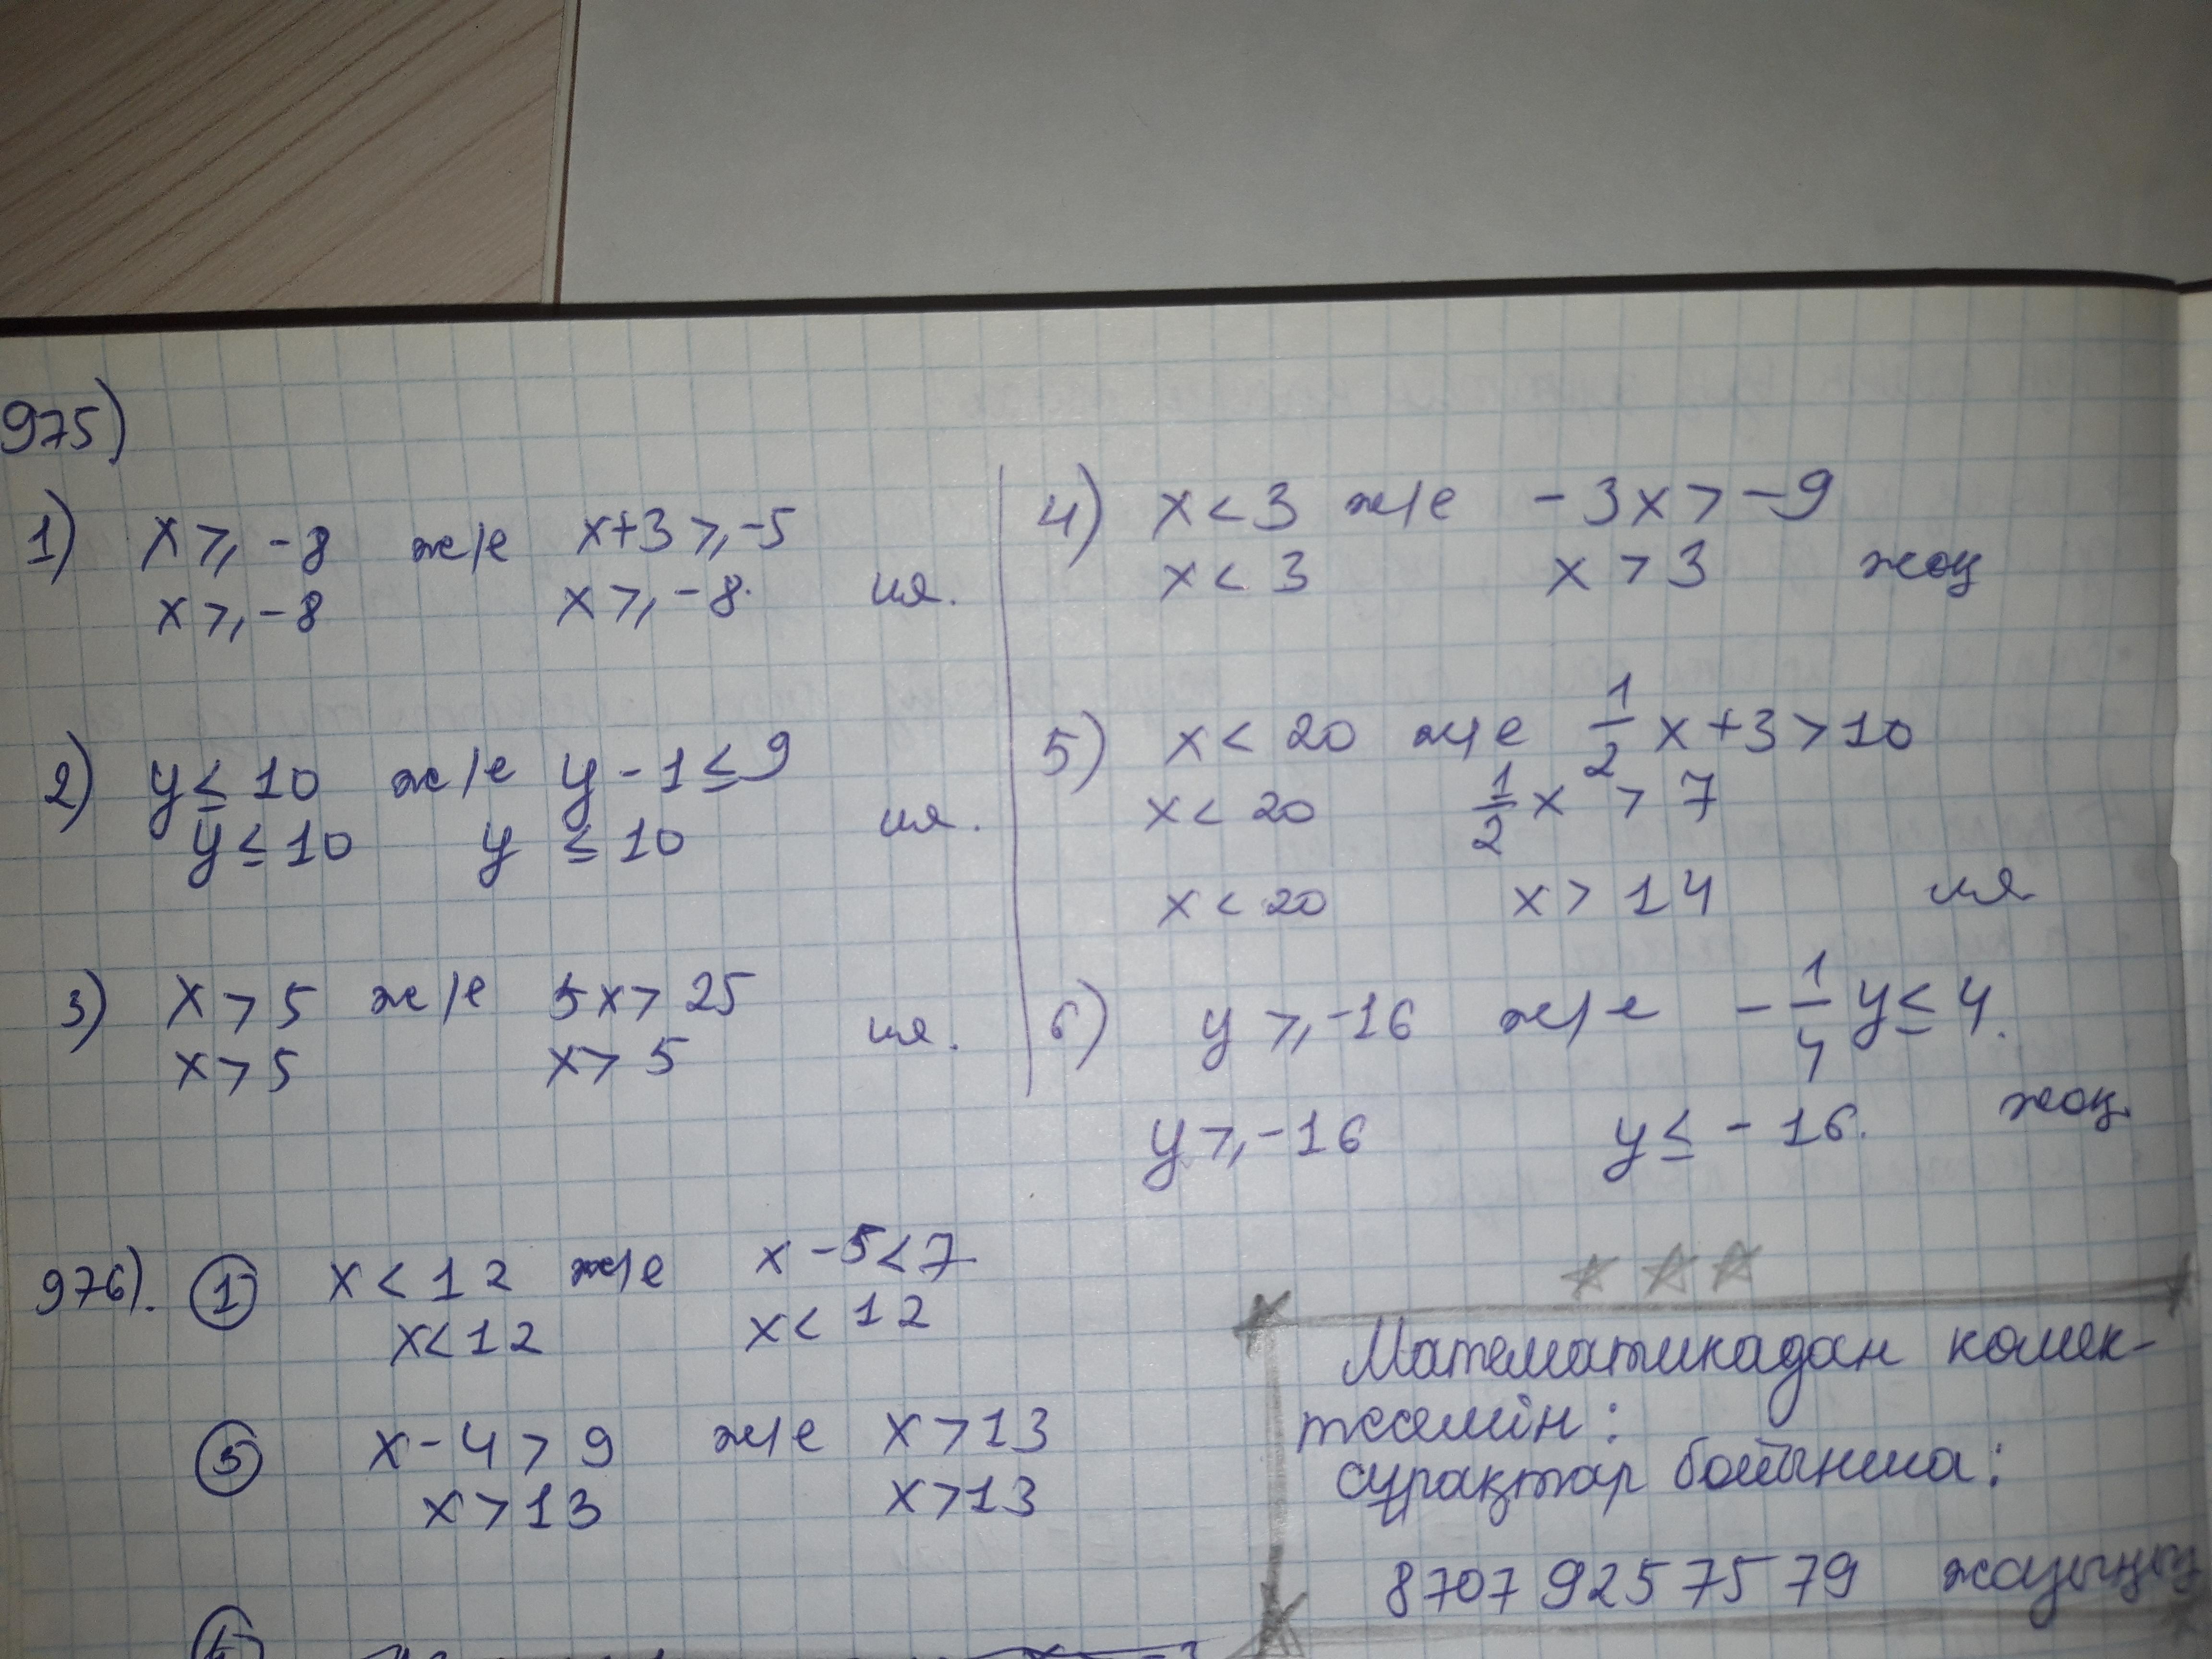 975)
1) x ≥ -8 ж/е x+3 ≥ -5
x ≥ -8 x ≥ -8. ия.
2) y ≤ 10 ж/е y - 1 ≤ 9
y ≤ 10 y ≤ 10 ия.
3) x > 5 ж/е 5x > 25
x > 5 x > 5 ия.
4) x < 3 ж/е -3x > -9
x < 3 x > 3 жоқ
5) x < 20 ж/е 1/2 x + 3 > 10
x < 20 1/2 x > 7
x < 20 x > 14 ия
6) y ≥ -16 ж/е -1/4 y ≤ 4.
y ≥ -16 y ≤ -16. жоқ.
976). ① x < 12 ж/е x - 5 < 7
x < 12 x < 12
⑤ x - 4 > 9 ж/е x > 13
x > 13 x > 13
Математикадан көмек-
тесемін:
сұрақтар бойынша:
8707 925 75 79 жазыңыз